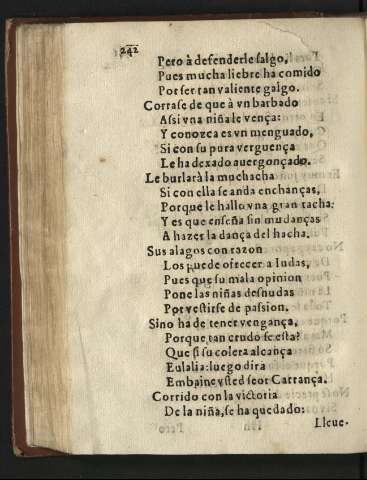 242
Pero à defenderle salgo,
Pues mucha liebre ha comido
Por ser tan valiente galgo.
Corrase de que à vn barbado
Assi vna niña le vença:
Y conozca es vn menguado,
Si con su pura verguença
Le ha dexado auergonçado.
Le burlarà la muchacha
Si con ella se anda en chanças,
Porque le hallo vna gran tacha:
Y es que enseña sin mudanças
A hazer la dança del hacha.
Sus alagos con razon
Los puede ofrecer a Iudas,
Pues que su mala opinion
Pone las niñas desnudas
Por vestirse de passion.
Sino ha de tener vengança,
Porque tan crudo se està?
Que si su colera alcança
Eulalia: luego dirà
Embaine vsted seor Carrança.
Corrido con la victoria
De la niña, se ha quedado:
Lleue-